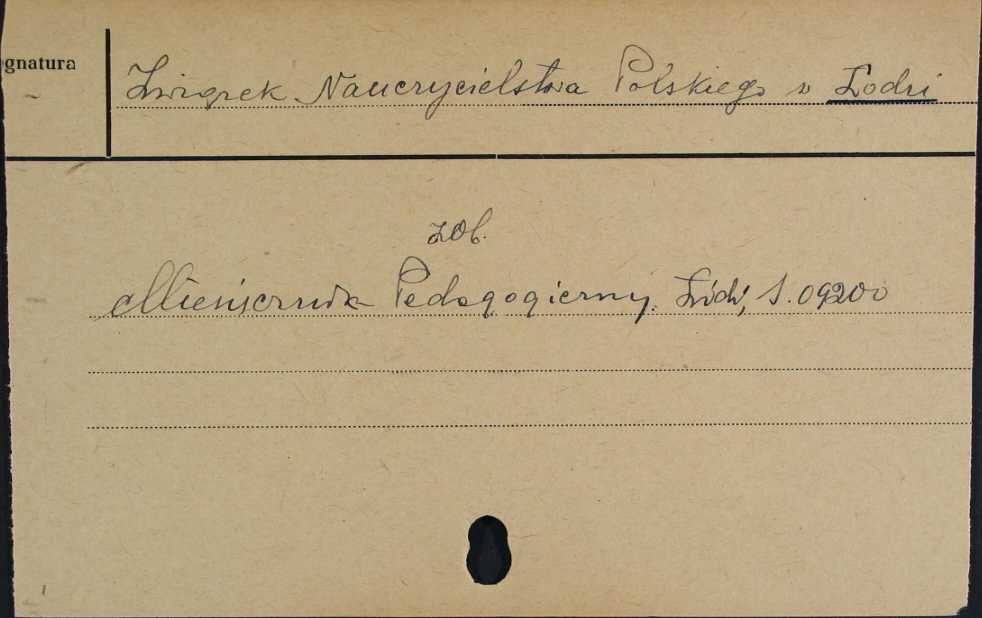 gnatura
Związek Nauczycielstwa Polskiego w Łodzi
zob.
Miesięcznik Pedagogiczny. Łódź, S. 09200